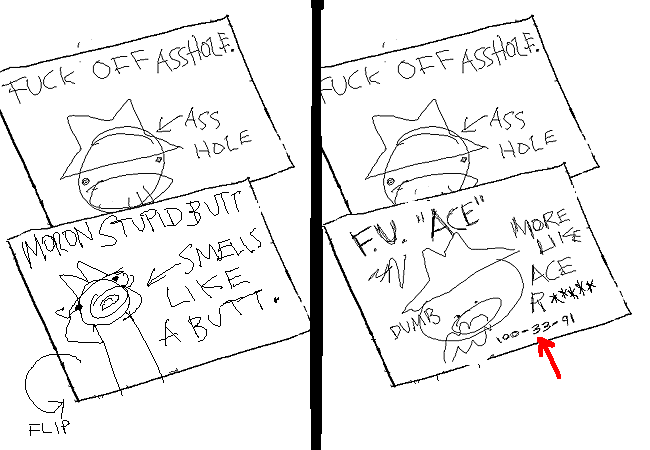 FUCK OFF ASSHOLE.
ASS
HOLE
MORON STUPID BUTT
SMELLS
LIKE
A BUTT.
FLIP
FUCK OFF ASSHOLE.
ASS
HOLE
F.U. "ACE"
MORE
LIKE
ACE
R*****
DUMB
100-33-91